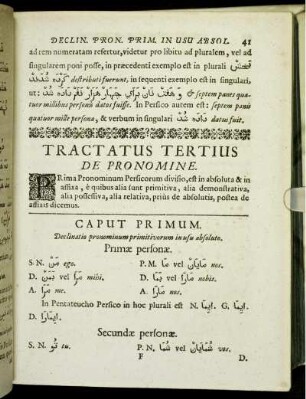 DECLIN. PRON. PRIM. IN USU ABSOL. 41
ad rem numeratam refertur, videtur pro libitu ad pluralem, vel ad
singularem poni posse, in præcedenti exemplo est in plurali
کرده شدند destributi fuerunt, in sequenti exemplo est in singulari,
ut: و هفت نان برای چهار هزار نفر داده شد & septem panes qua-
tuor millibus personis datos fuisse. In Persico autem est: septem panis
quatuor mille persona, & verbum in singulari داده شد datus fuit.
TRACTATUS TERTIUS
DE PRONOMINE.
PRima Pronominum Persicorum divisio, est in absoluta & in
affixa, è quibus alia sunt primitiva, alia demonstrativa,
alia possessiva, alia relativa, prius de absolutis, postea de
affixis dicemus.
CAPUT PRIMUM.
Declinatio pronominum primitivorum in usu absoluto.
Primæ personæ.
S. N. من ego. P. M. ما vel مایان nos.
D. من vel مرا mihi. D. ما vel مارا nobis.
A. مرا me. A. مارا nos.
In Pentateucho Persico in hoc plurali est N. ایما G. ایما.
D. ایمارا.
Secundæ personæ.
S. N. تو tu. P. N. شما vel شمایان vos.
F D.